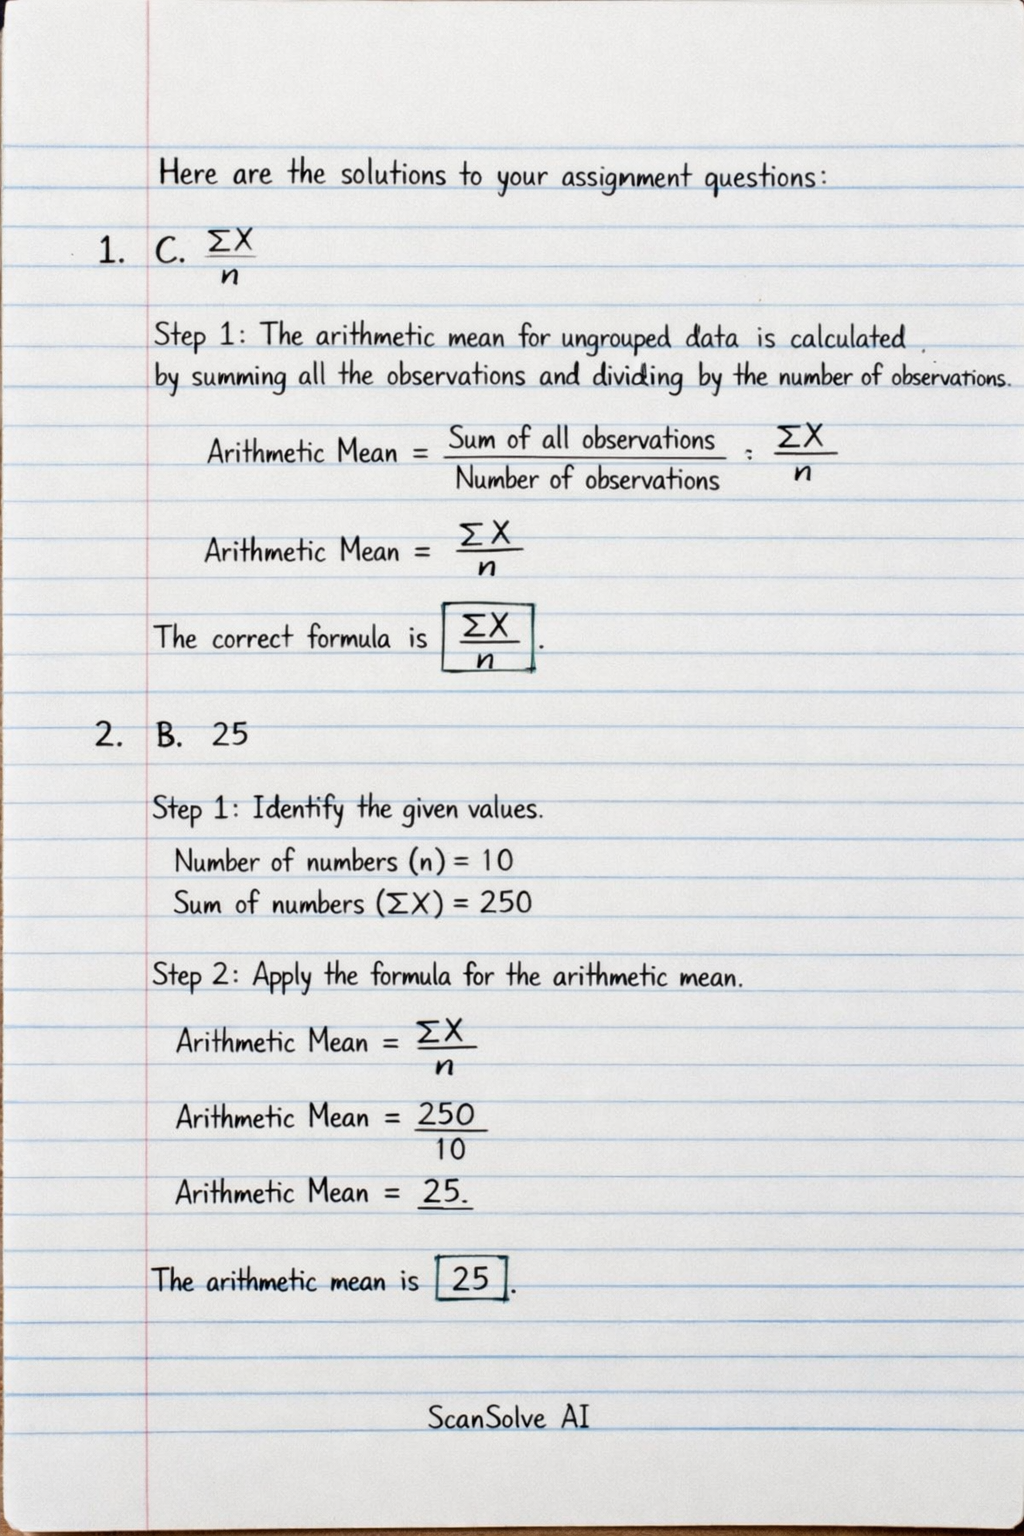 Here are the solutions to your assignment questions:
1. C. ΣX/n
Step 1: The arithmetic mean for ungrouped data is calculated
by summing all the observations and dividing by the number of observations.
Arithmetic Mean = Sum of all observations/Number of observations : ΣX/n
Arithmetic Mean = ΣX/n
The correct formula is ΣX/n.
2. B. 25
Step 1: Identify the given values.
Number of numbers (n) = 10
Sum of numbers (ΣX) = 250
Step 2: Apply the formula for the arithmetic mean.
Arithmetic Mean = ΣX/n
Arithmetic Mean = 250/10
Arithmetic Mean = 25.
The arithmetic mean is 25.
ScanSolve AI